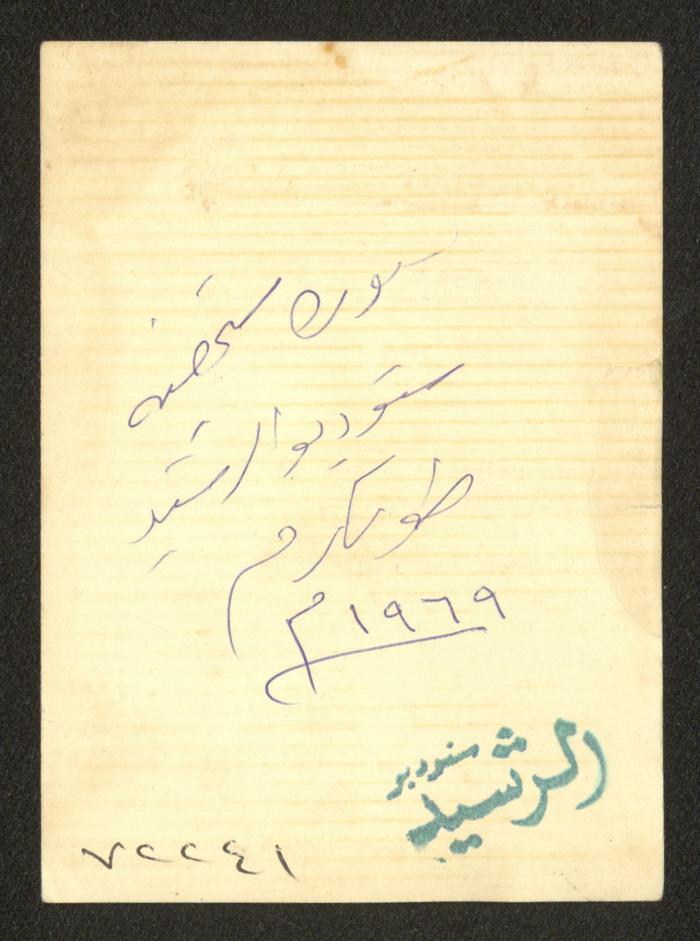 صورة شخصية
ستوديو الرشيد
طولكرم
١٩٦٩ م
ستوديو
الرشيد
٧٢٢٤١